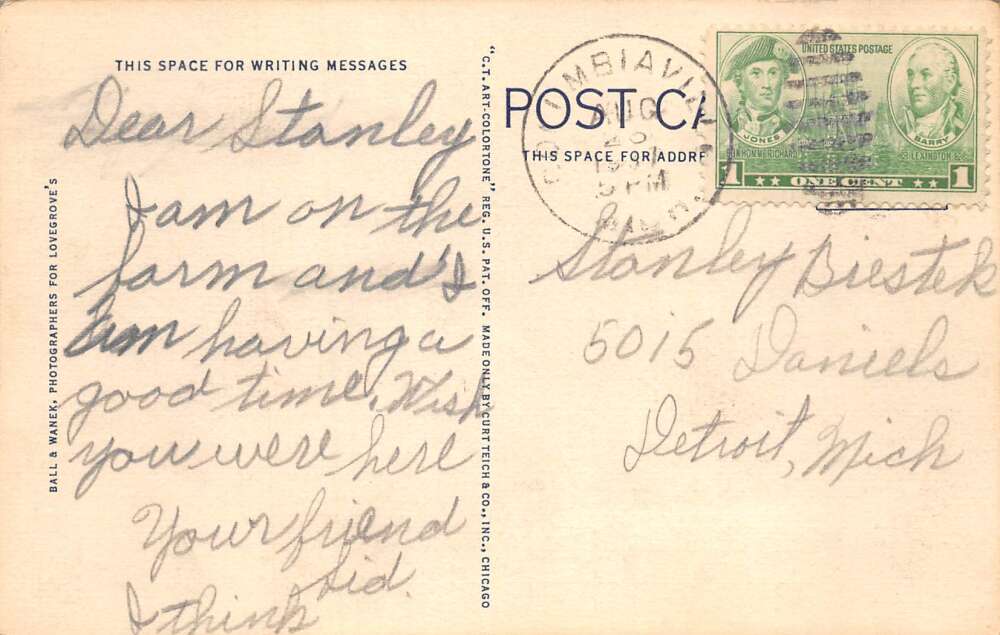 THIS SPACE FOR WRITING MESSAGES
Dear Stanley
I am on the
farm and I
am having a
good time. Wish
you were here
Your friend
Sid.
I think
BALL & WANEK, PHOTOGRAPHERS FOR LOVEGROVE'S
"C.T. ART-COLORTONE" REG. U.S. PAT. OFF. MADE ONLY BY CURT TEICH & CO., INC., CHICAGO
POST CA
THIS SPACE FOR ADDRE
AUG
5 PM
UNITED STATES POSTAGE
JONES
BARRY
BON HOMME RICHARD
LEXINGTON
1 ONE CENT 1
Stanley Biestek
5015 Daniels
Detroit, Mich